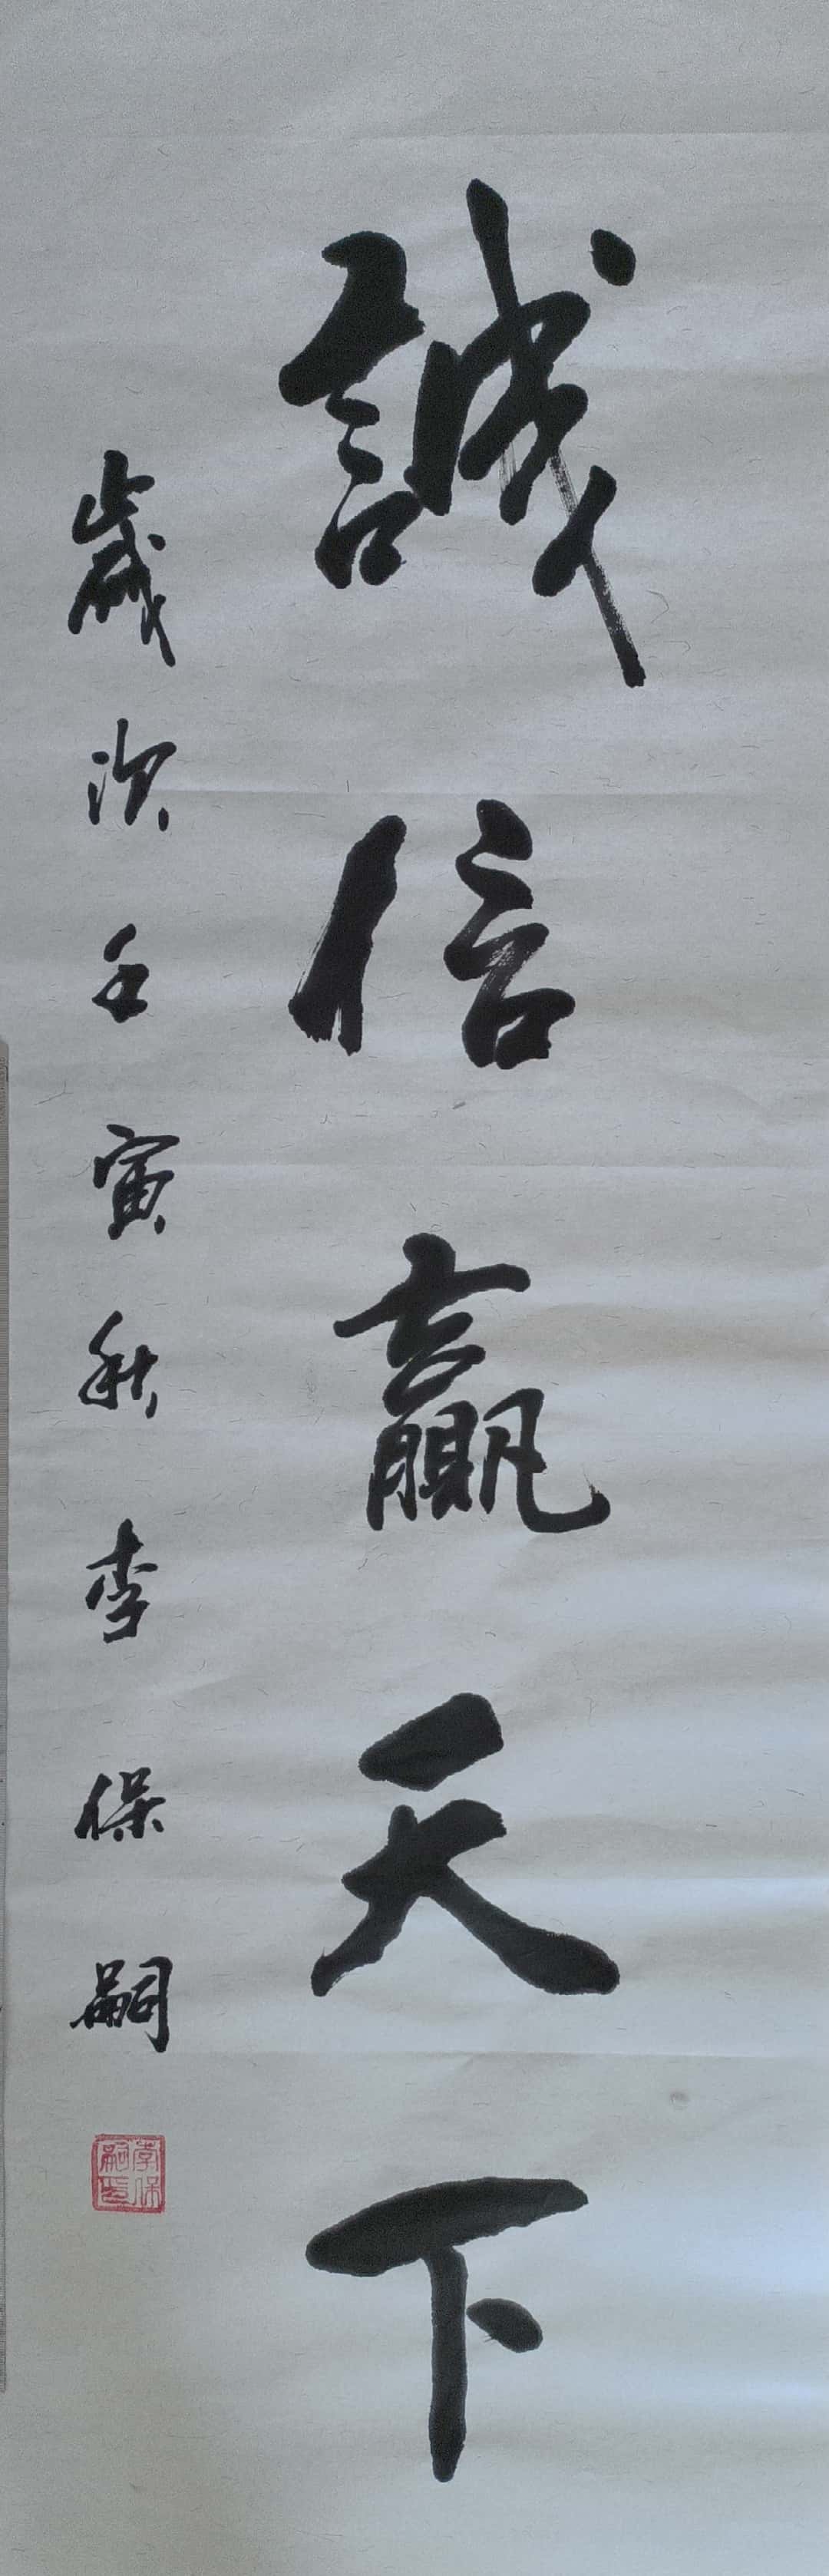 誠信贏天下
歲次壬寅秋李保嗣
李保嗣印